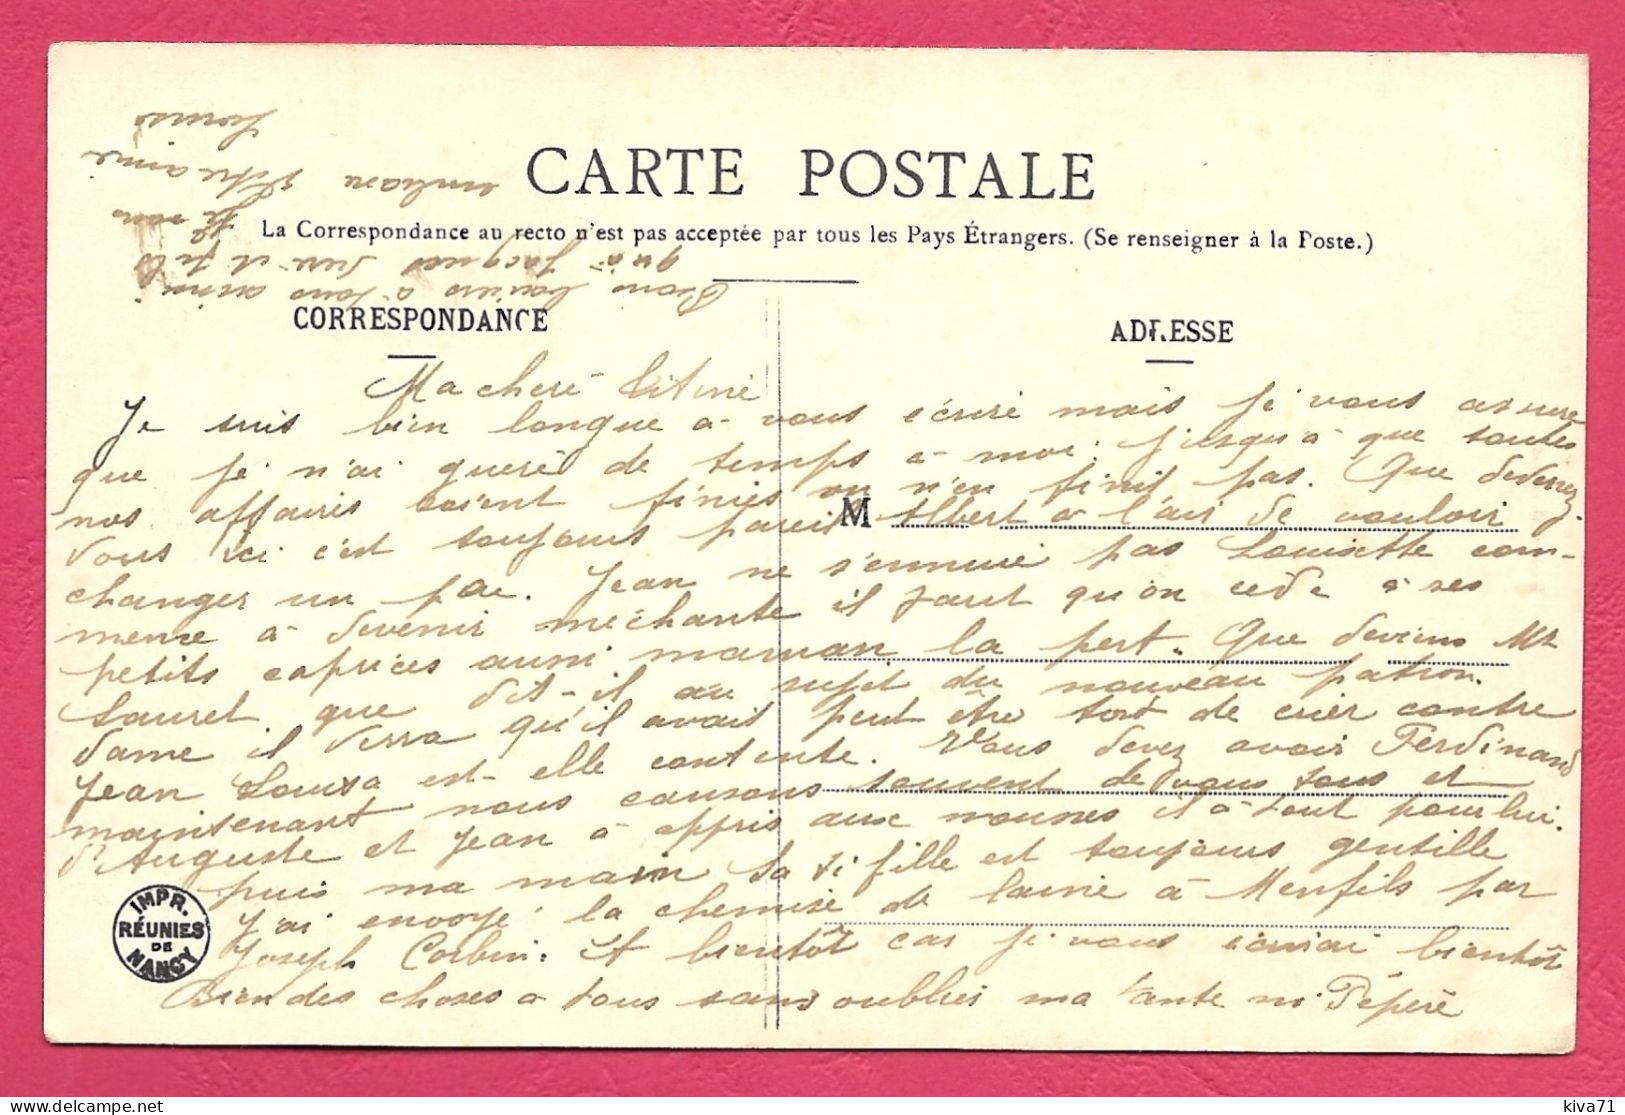 CARTE POSTALE
La Correspondance au recto n'est pas acceptée par tous les Pays Étrangers. (Se renseigner à la Poste.)
CORRESPONDANCE
ADRESSE
M
Ma cheré titine
Je suis bien longue a vous écriré mais je vous assure
que je n'ai queré de temps a moi; jusqu'a que toutes
nos affairés soient finiés on n'en finit pas. Que devenez
vous ici c'est toujours pareil Albert a l'air de vouloir
changer un peu. Jean ne s'ennuie pas Louisette com-
mence a devenir méchante il faut qu'on cède a ses
petits caprices aussi maman la pert. Que deviens Mr
Lauret que dit-il au sujet du nouveau patron.
dame il verra qu'il avait peut être tort de crier contre
Jean Louisa est-elle contente. Vous devez avoir Ferdinand
maintenant nous causons souvent de vous tous et
d'Auguste et Jean a appris aux nounes il a tout pour lui.
puis ma main sa ti fille est toujours gentille
J'ai envoyé la chemise de laine à Menfils par
Joseph Corbin. Et bientôt car je vous écrirai bientôt
Bien des choses a tous sans oublier ma tante ni Pépéré
Bons baisers a tous ainsi
qu'à Jacques Susi et Félé
Je vous
embrasse Votre amie
IMPR. RÉUNIES DE NANCY
kiva71